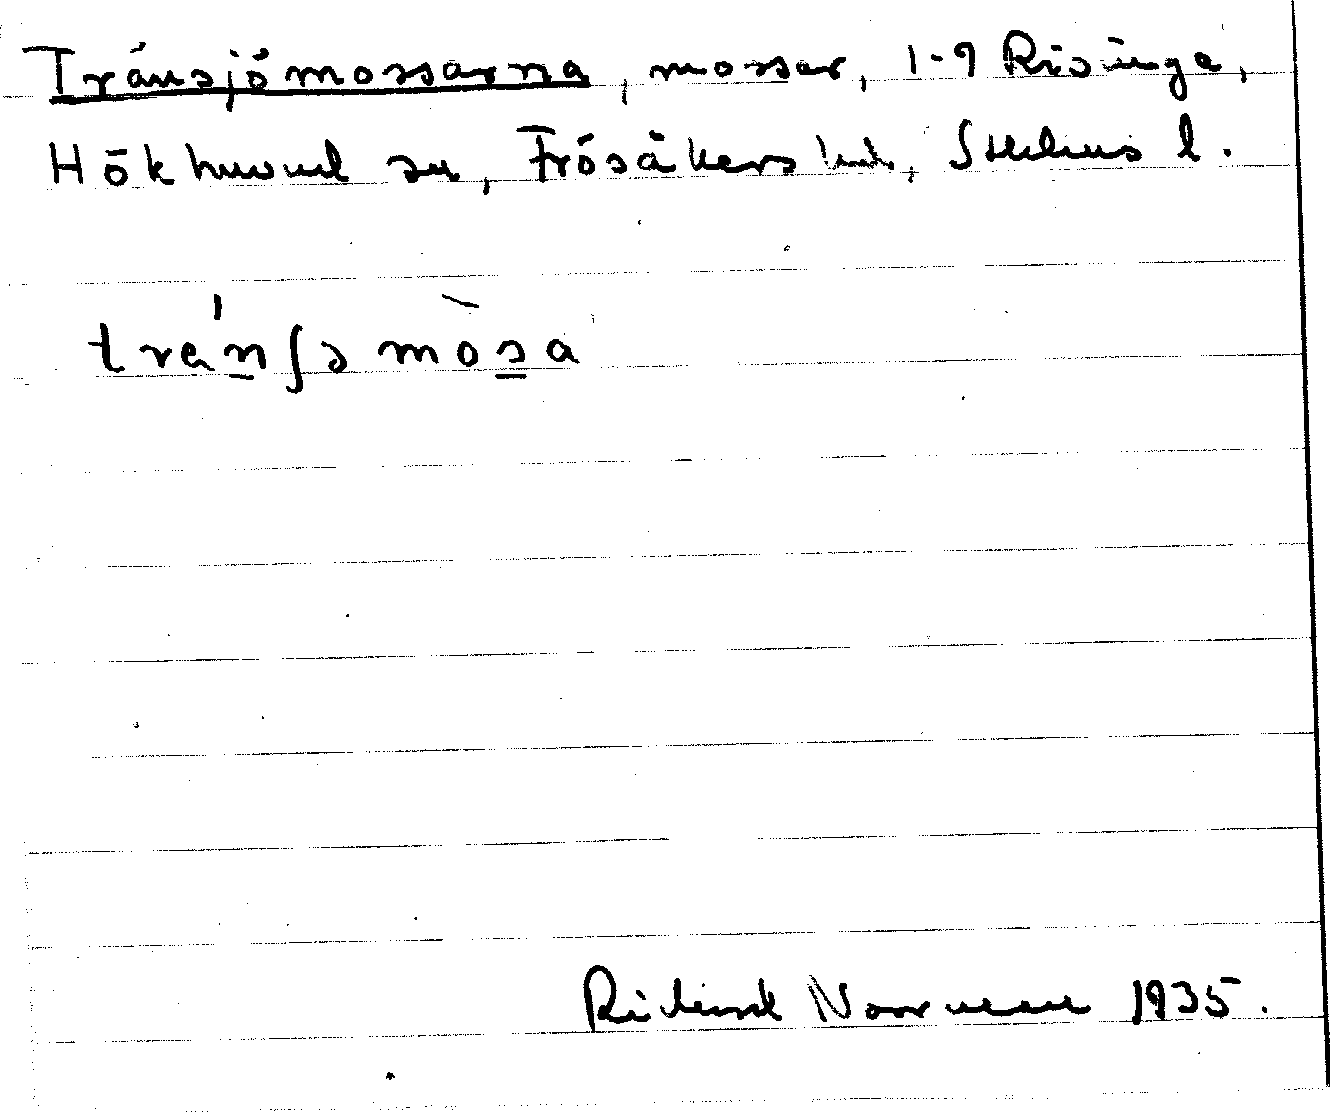 Tränsjömossarna, mossar, 1-9 Risinge,
Hökhuvud sn, Frösåkers hd, Sthlms l.
trän∫ə mòsa
Rikard Norrman 1935.